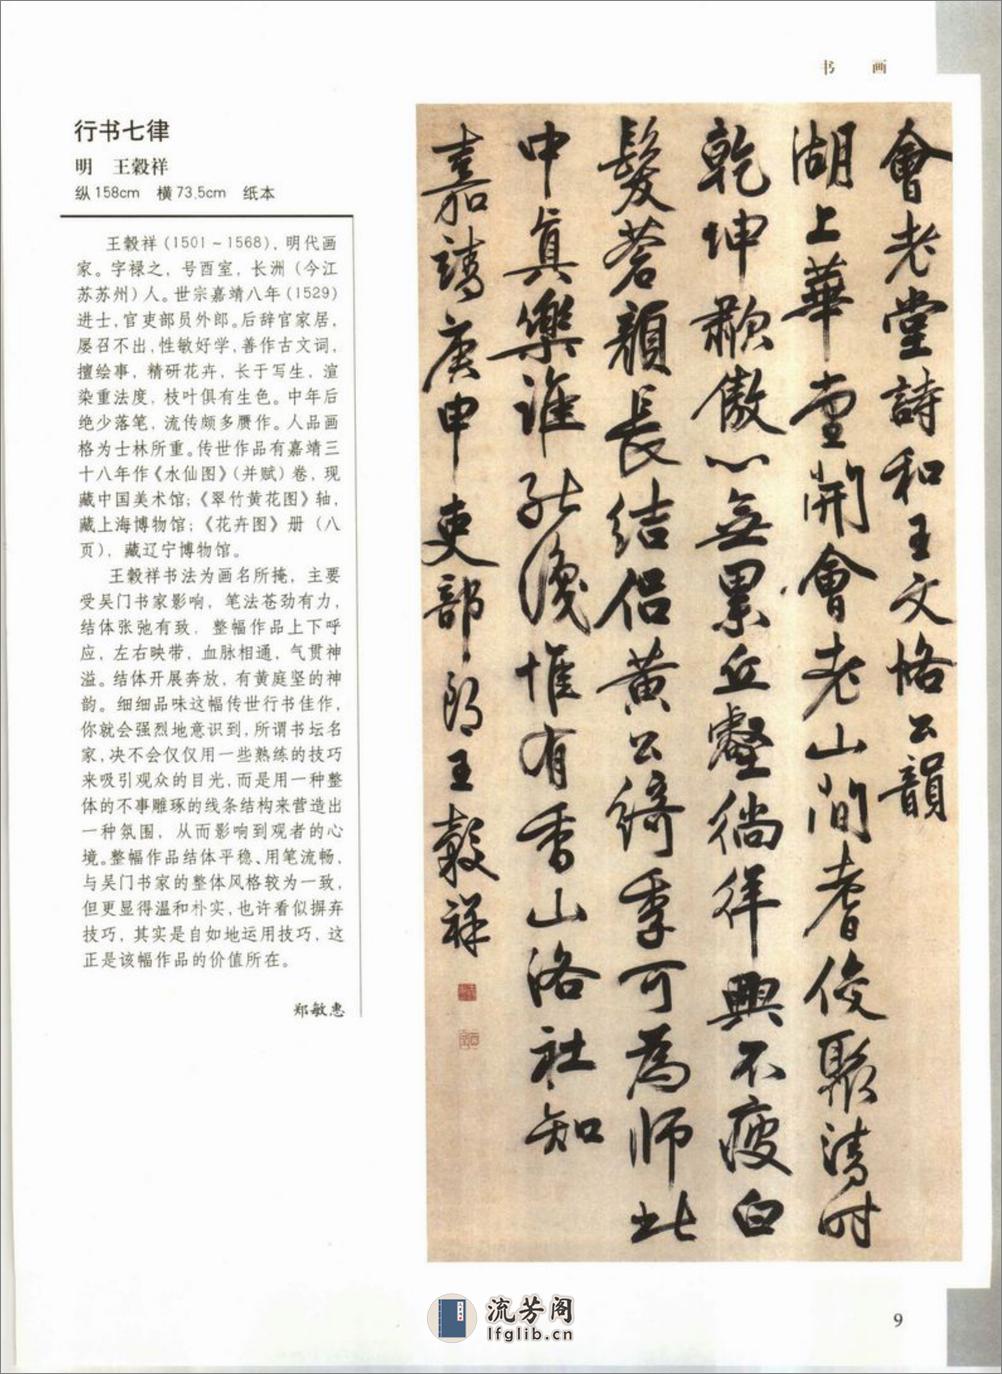 书 画
行书七律
明 王穀祥
纵158cm 横73.5cm 纸本
王穀祥(1501~1568),明代画
家。字禄之,号酉室,长洲(今江
苏苏州)人。世宗嘉靖八年(1529)
进士,官吏部员外郎。后辞官家居,
屡召不出,性敏好学,善作古文词,
擅绘事,精研花卉,长于写生,渲
染重法度,枝叶俱有生色。中年后
绝少落笔,流传颇多赝作。人品画
格为士林所重。传世作品有嘉靖三
十八年作《水仙图》(并赋)卷,现
藏中国美术馆;《翠竹黄花图》轴,
藏上海博物馆;《花卉图》册(八
页),藏辽宁博物馆。
王穀祥书法为画名所掩,主要
受吴门书家影响,笔法苍劲有力,
结体张弛有致,整幅作品上下呼
应,左右映带,血脉相通,气贯神
溢。结体开展奔放,有黄庭坚的神
韵。细细品味这幅传世行书佳作,
你就会强烈地意识到,所谓书坛名
家,决不会仅仅用一些熟练的技巧
来吸引观众的目光,而是用一种整
体的不事雕琢的线条结构来营造出
一种氛围,从而影响到观者的心
境。整幅作品结体平稳、用笔流畅,
与吴门书家的整体风格较为一致,
但更显得温和朴实,也许看似摒弃
技巧,其实是自如地运用技巧,这
正是该幅作品的价值所在。
郑敏惠
會老堂詩和王文恪公韻
湖上華堂開會老山間耆俊聚清时
乾坤歗傲心無累丘壑徜徉興不疲白
髮蒼顏長結侣黄公綺季可為師此
中真樂谁能識惟有香山洛社知
嘉靖庚申吏部郎王穀祥
流芳阁
lfglib.cn
9